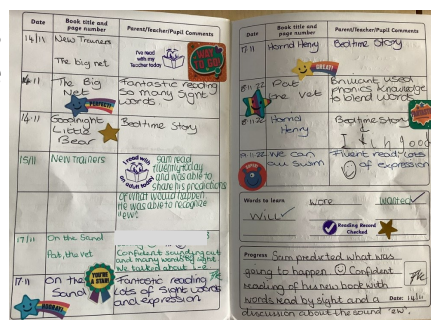 Date
Book title and page number
Parent/Teacher/Pupil Comments
14/11
New Trainers
The big net
I've read with my Teacher today
WAY TO GO!
14.11
The Big Net
PERFECT!
Fantastic reading
so many sight
words.
14.11
Goodnight
Little
Bear
Bedtime Story
15/11
New Trainers
I read with an adult today
Sam read
fluently today
and was able to
share his predictions
of what would happen.
He was able to recognize
'ew'.
17/11
On the Sand
Pat, the vet
Confident sounding out
and many words by sight
We talked about i-e
17.11
On the
Sand
YOU'RE A STAR!
Fantastic reading
lots of sight words
and expression
Date
Book title and page number
Parent/Teacher/Pupil Comments
17.11
Horrid Henry
Bedtime Story
GREAT!
Pat
the vet
Brilliant, used
phonics knowledge
to blend words
Horrid
Henry
Bedtime Story
We can
all swim
Fluent read, lots
of expression
Words to learn
Will
wore
wanted
Reading Record Checked
Progress
Sam predicted what was
going to happen Confident
reading of his new book with
words read by sight and a
Date: 14/11
discussion about the sound 'ew'.